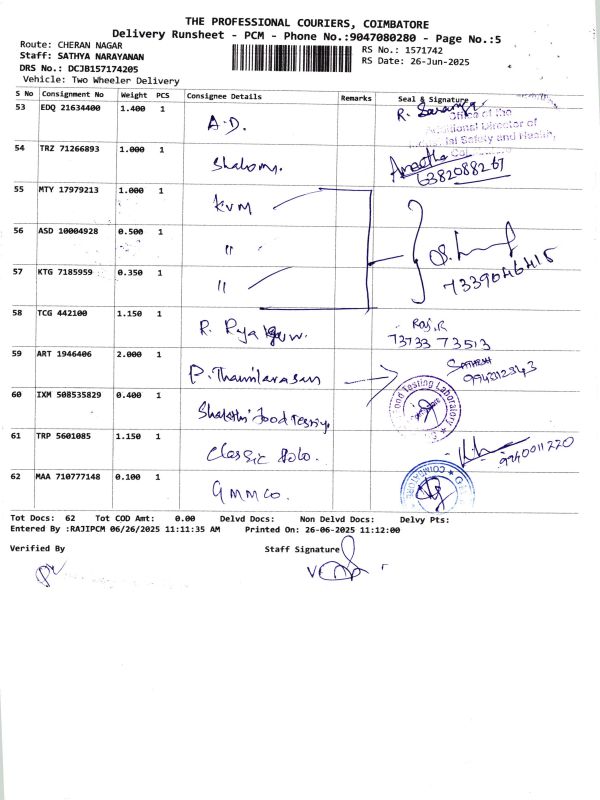 THE PROFESSIONAL COURIERS, COIMBATORE
Delivery Runsheet - PCM - Phone No.:9047080280 - Page No.:5
Route: CHERAN NAGAR
Staff: SATHYA NARAYANAN
DRS No.: DCJB157174205
Vehicle: Two Wheeler Delivery
RS No.: 1571742
RS Date: 26-Jun-2025
S No Consignment No Weight PCS Consignee Details Remarks Seal & Signature
53 EDQ 21634400 1.400 1 A.D.
Office of the
Additional Director of
Safety and Health,
54 TRZ 71266893 1.000 1 Shalom. Ameetha
6382088267
55 MTY 17979213 1.000 1 KVM
56 ASD 10004928 0.500 1 "
7339046415
57 KTG 7185959 0.350 1 "
58 TCG 442100 1.150 1 R. Raj.R
73733 73513
59 ART 1946406 2.000 1 P. Thamilarasan SATHISH
9943112343
60 IXM 508535829 0.400 1 Shakthi Food Testing. Food Testing Laboratory
61 TRP 5601085 1.150 1 Classic Polo. 9940011220
62 MAA 710777148 0.100 1 GMMCO. COIMBATORE
Tot Docs: 62 Tot COD Amt: 0.00 Delvd Docs: Non Delvd Docs: Delvy Pts:
Entered By :RAJIPCM 06/26/2025 11:11:35 AM Printed On: 26-06-2025 11:12:00
Verified By Staff Signature